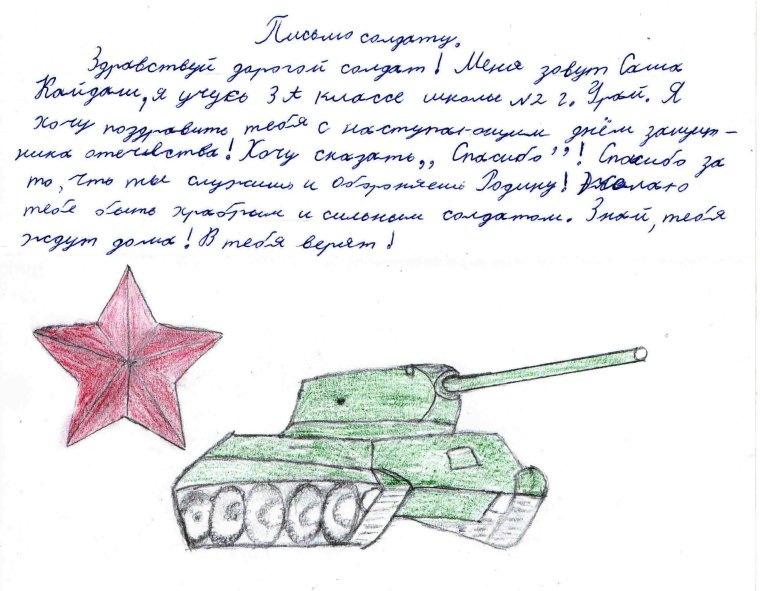 Письмо солдату.
Здравствуй дорогой солдат! Меня зовут Саша
Кайдаш, я учусь 3А классе школы №2 г. Урай. Я
хочу поздравить тебя с наступающим днём защит-
ника отечевства! Хочу сказать „ Спасибо”! Спасибо за
то, что ты служишь и обороняешь Родину! Желаю
тебе быть храбрым и сильным солдатом. Знай, тебя
ждут дома! В тебя верят!